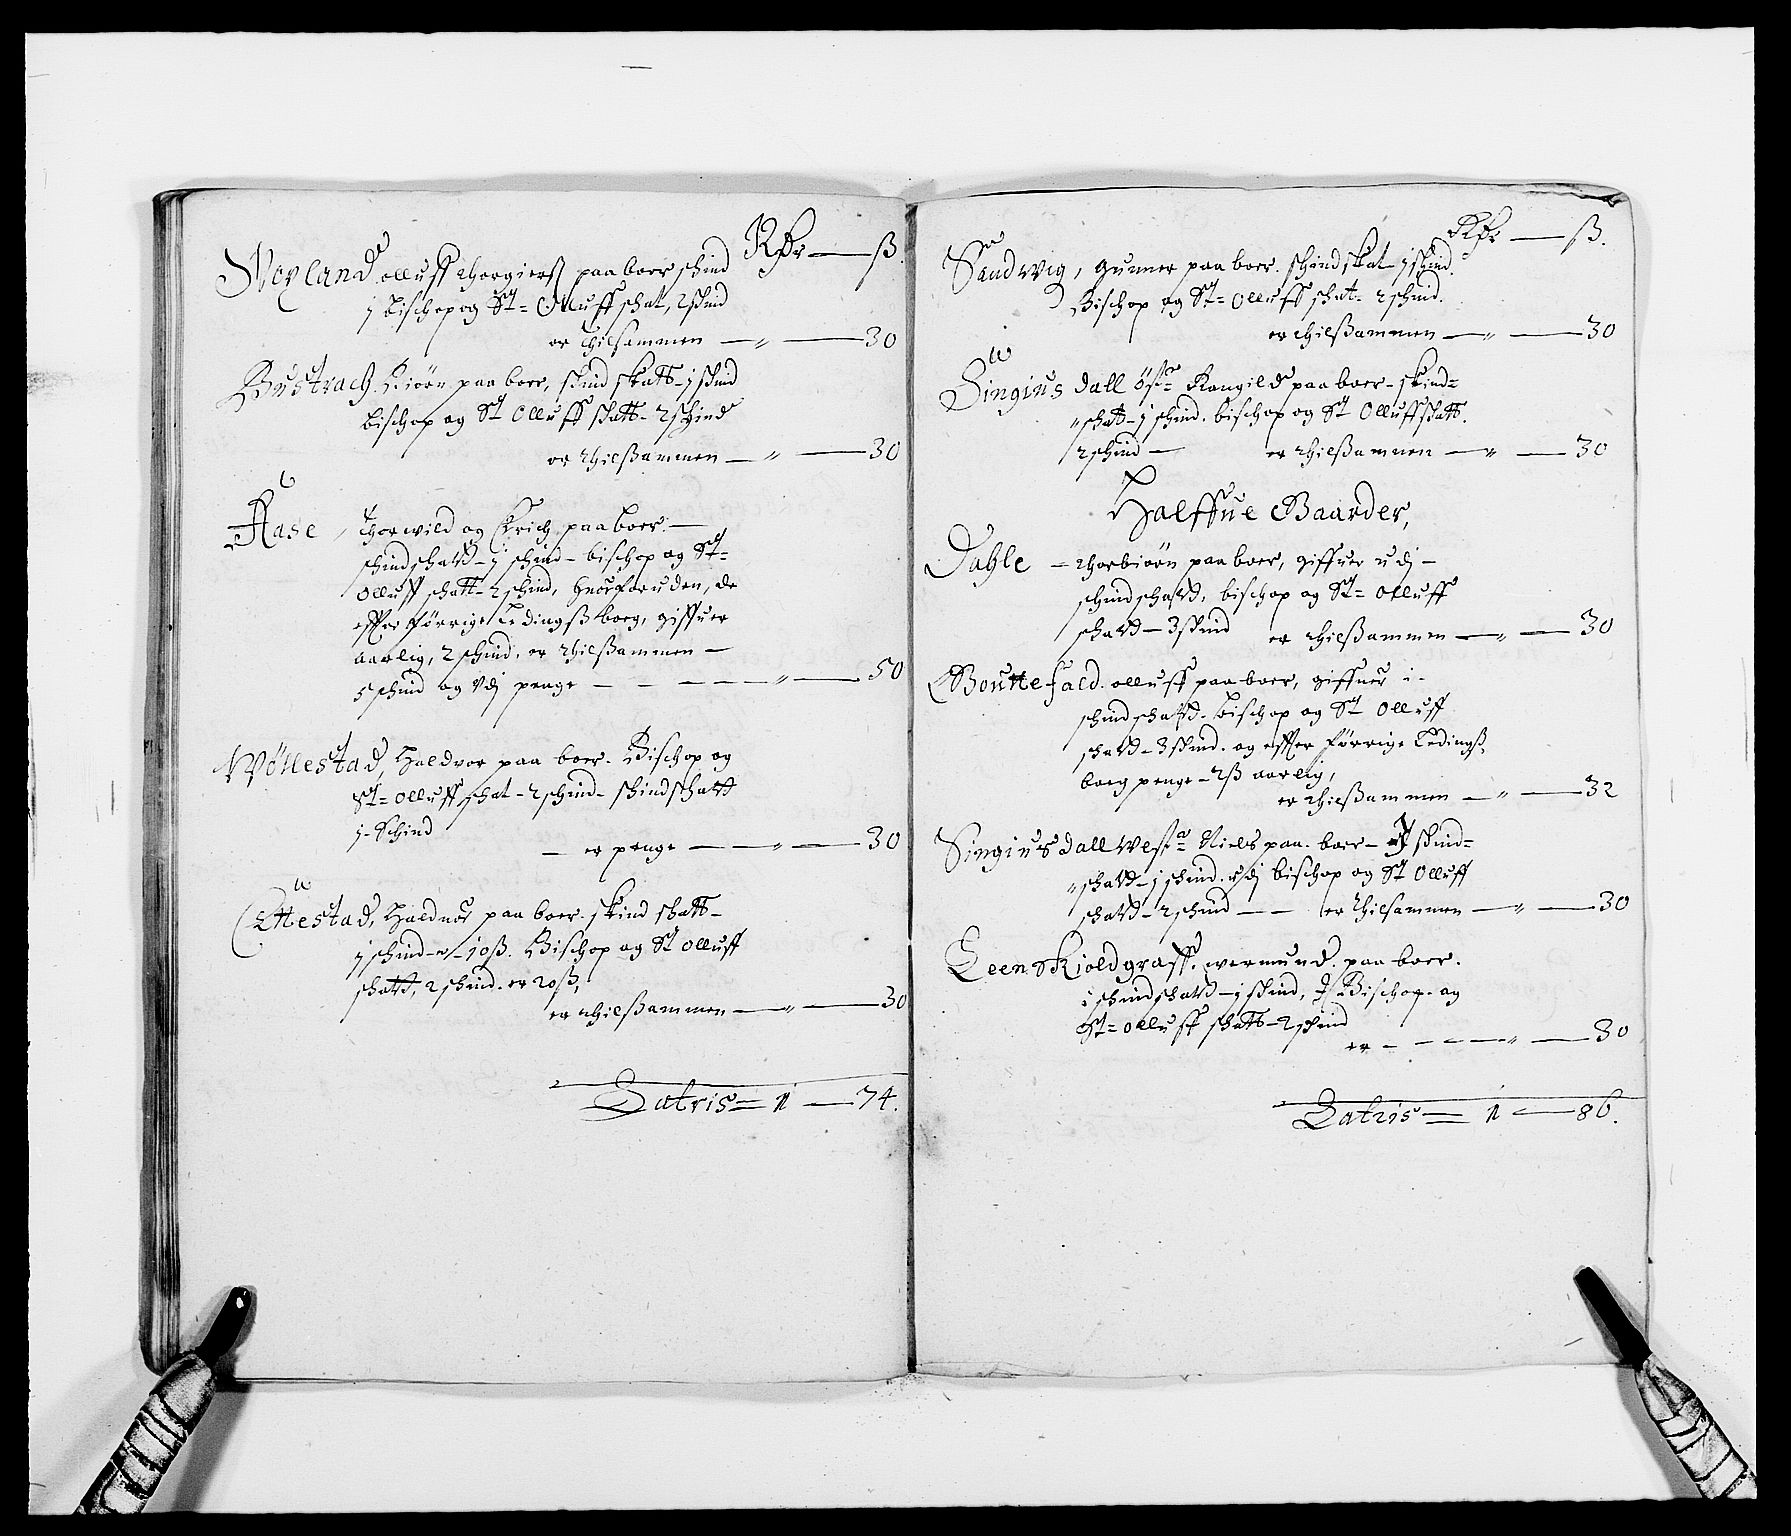 Rdr — ß.
Moyland olluff thorgierß paa boer schind
j bischop og St= Olluff schat, 2 skind
er thilsammen — " — 30
Bustrach. Biørn paa boer, skind skatt - j skind
bischop og St Olluff skatt - 2 schind
er thilßammen — " — 30
Aase, Thorwild og Erich paa boer. —
schindschatt - j schind - bischop og St=
Olluff schatt - 2 schind, huorforuden, de
effter förrige Ledingß boeg, giffuer
aarlig, 2 schind. er thilßammen —
5 schind og Udj penge — " — 50
Wöllestad, Haldvor paa boer. Bischop og
St= Olluff schat - 2 schind - skindschatt
j - Schind
— er penge — " — 30
Ettestad, Haldvor paa boer. skind skatt -
j schind - er - 10 ß. Bischop og St Olluff
schatt, 2 schind. er 20 ß,
er thilßammen — " — 30
Latris = 1 — 74.
Rdr — ß.
Sandwig, Gunner paa boer. skind skat j skind.
Bischop og St= Olluff skat - 2 schind.
er thilßammen — " — 30
Singiusdall öst= Rangild paa boer - skind=
"schatt - j schind. bischop og St Olluff schatt.
2 schind — er thilßammen — " — 30
Halffue Gaarder,
Dahle — thorbiörn paa boer, giffuer udj -
schindschatt, bischop og St= Olluff
schatt - 3 skind er thilßammen — " — 30
Bouttefald. olluff paa boer, giffuer i -
schindschatt. bischop og St Olluff
schatt - 3 skind. og effter förrige Ledingß
boeg penge - 2 ß aarlig,
er thilßammen — " — 32
Singiusdall West= Niels paa boer - skind=
"schatt - j schind. udj bischop og St Olluff
schatt - 2 schind — er thilsammen — " — 30
Leenskioldgraff. wermund. paa boer.
i schindschatt - j skind, Bischop og
St= Olluff skatt - 2 schind
er — " — 30
Latris = 1 — 86.